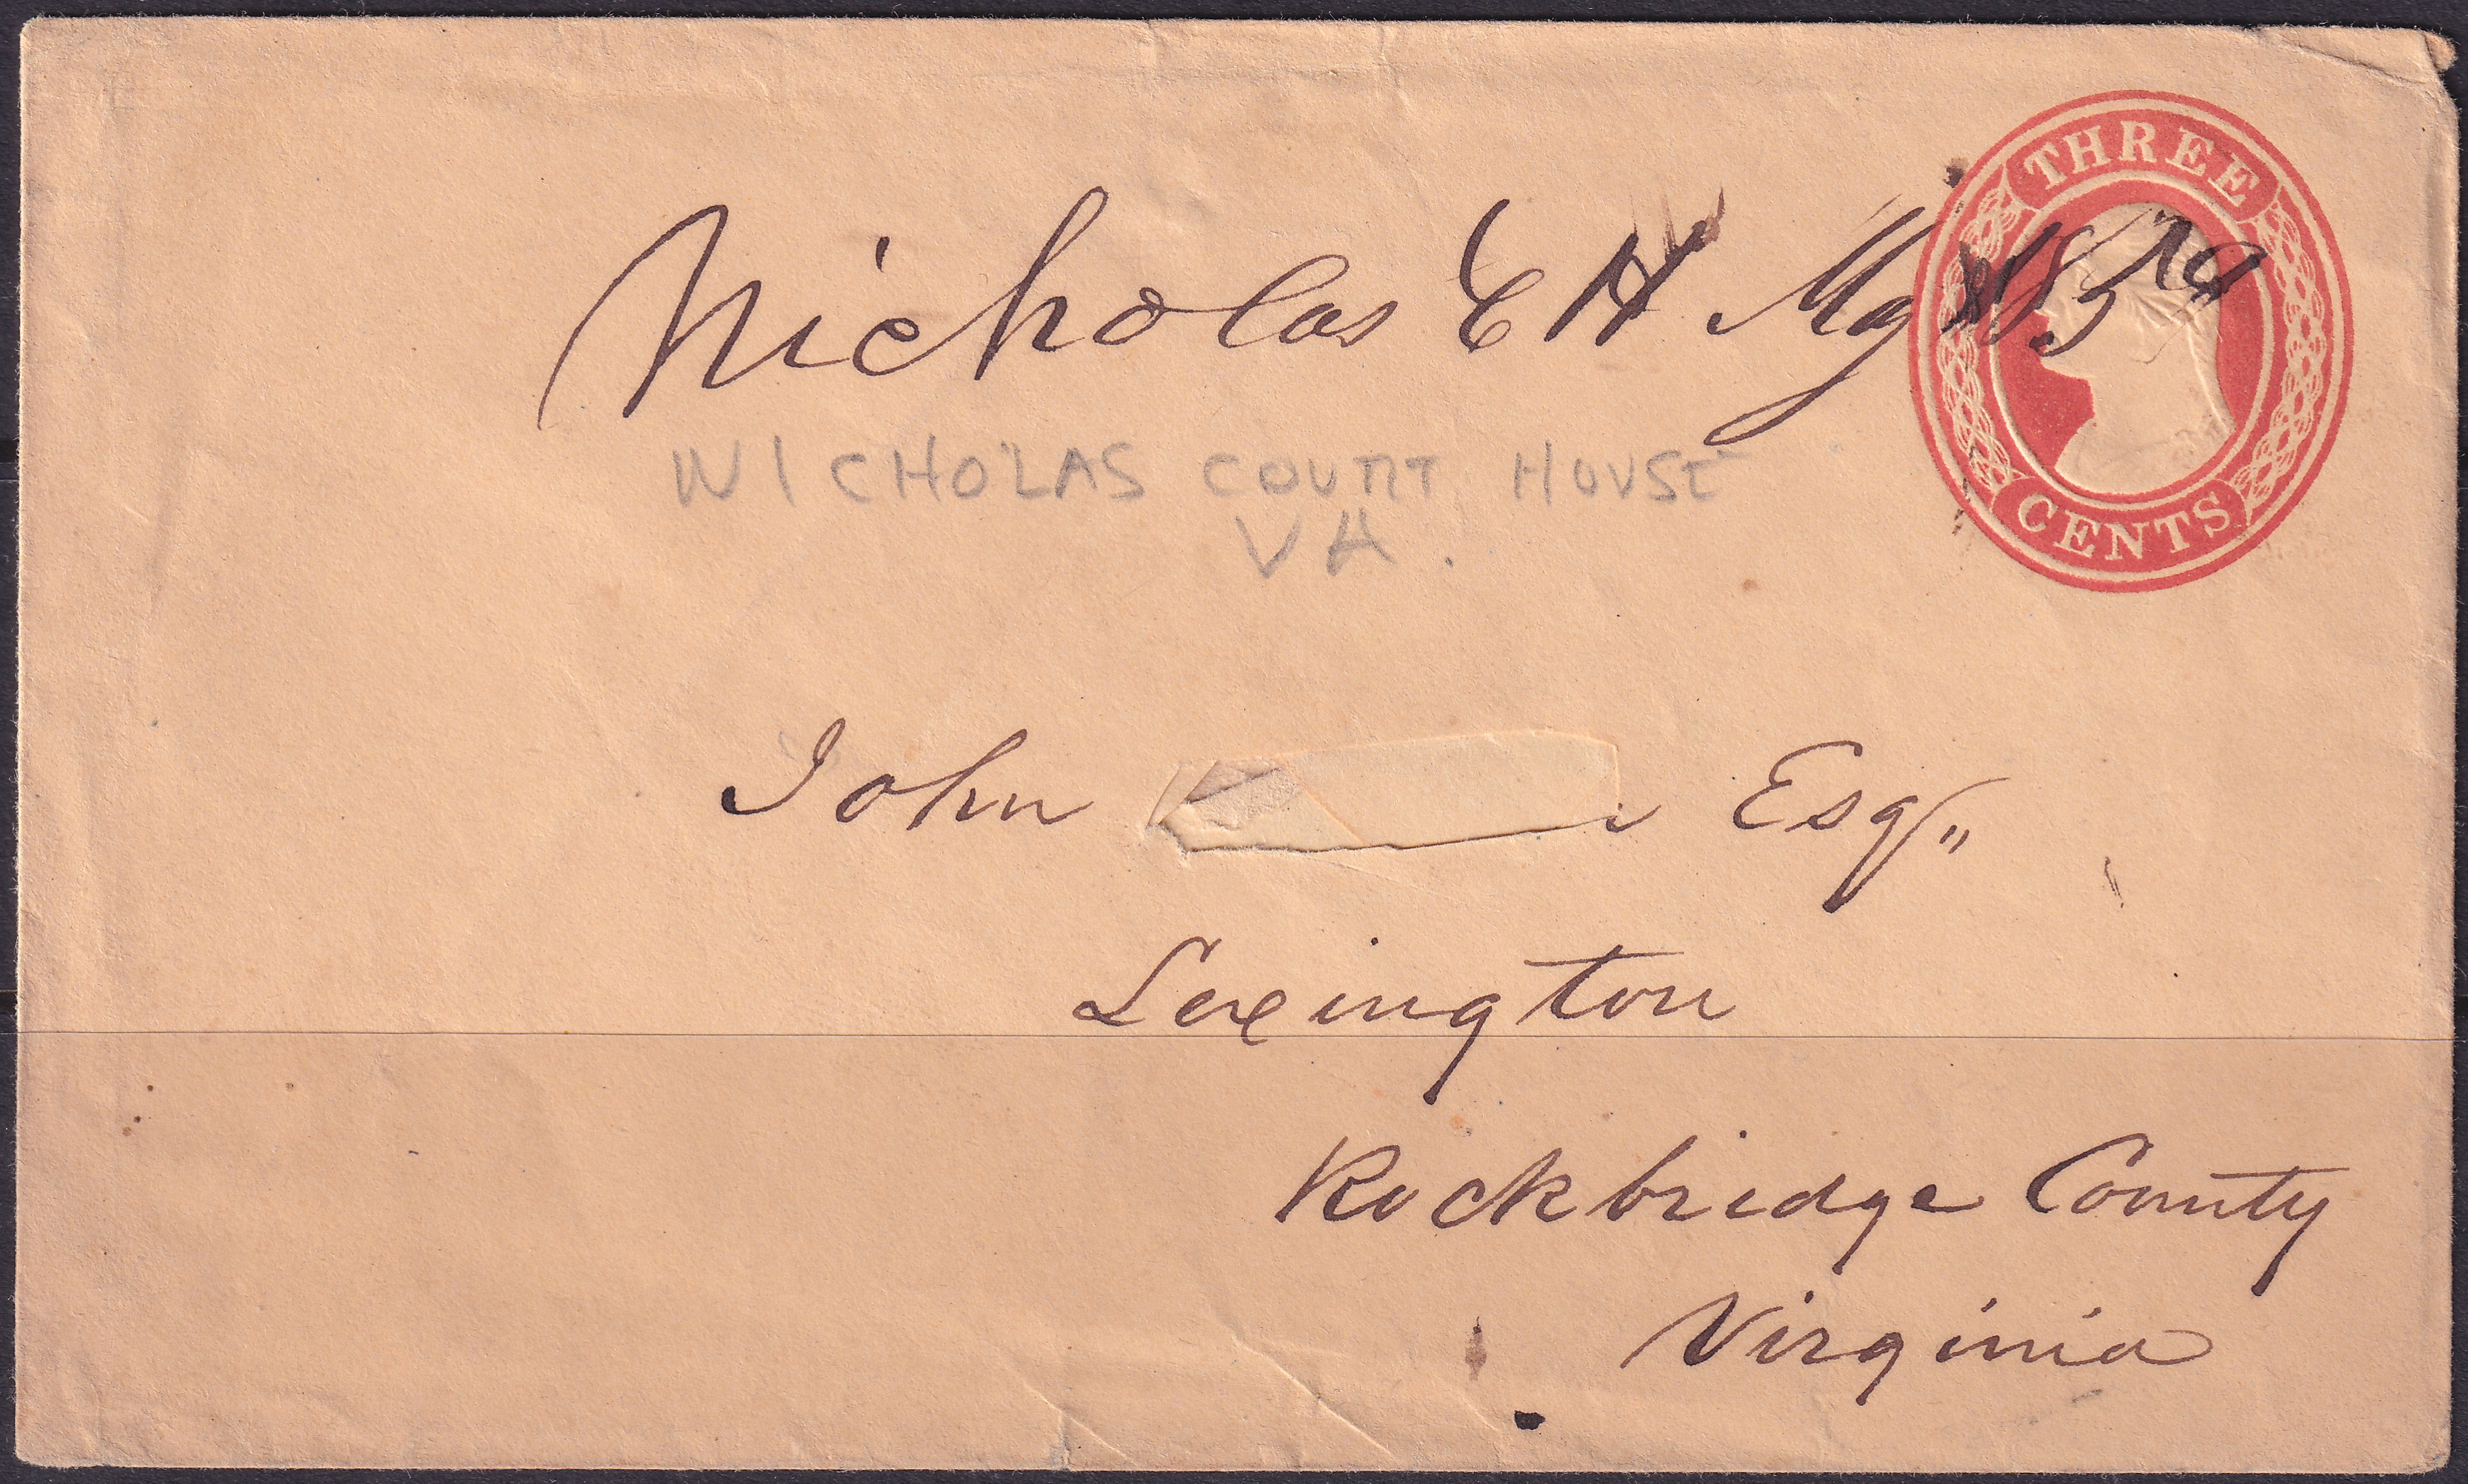 THREE
Nicholas C H
CENTS
NICHOLAS COURT HOUSE
VA.
John Esq"
Lexington
Rockbridge County
Virginia